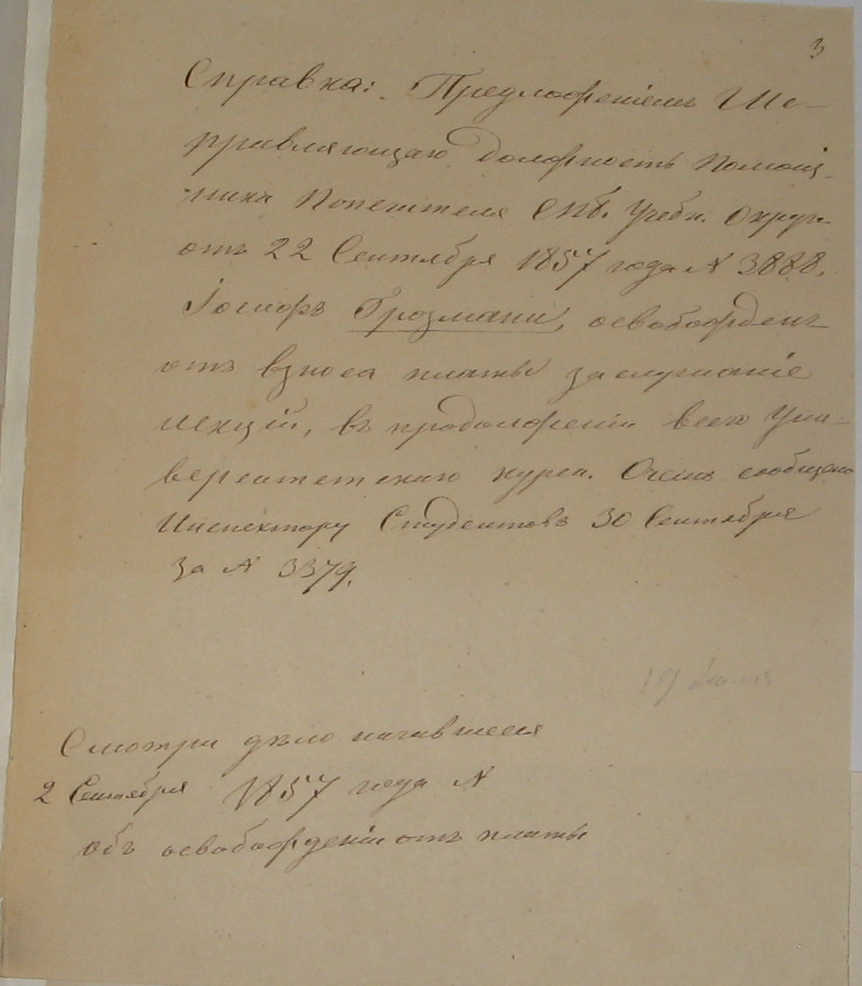 3
Справка: Предложеніемъ Ис-
правляющаго Должность Помощ-
ника Попечителя СПб. Учебн. Округа
отъ 22 Сентября 1857 года N 3888,
Іосифъ Грозмани, освобожденъ
отъ взноса платы за слушаніе
лекцій, въ продолженіи всего Уни-
верситетскаго курса. О чемъ сообщено
Инспектору Студентовъ 30 Сентября
за N 3379.
19
Смотри дѣло начавшееся
2 Сентября 1857 года N
объ освобожденіи отъ платы